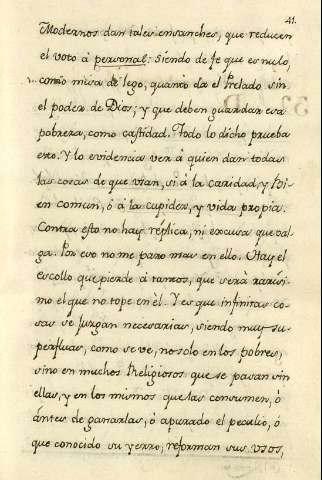 41.
Modernos dan tales ensanches, que reducen
el voto â personal: siendo de fe que es nulo,
como misa de lego, quanto da el Prelado sin
el poder de Dios; y que deben guardar esa
pobreza, como castidad. Todo lo dicho prueba
eso. Y lo evidencia ver â quien dan todas
las cosas de que usan, si â la caridad, y Bi-
en comun, ô â la cupidez, y vida propia.
Contra esto no hay rêplica, ni excusa que val-
ga. Por eso no me paro mas en ello. Hay el
escollo que pierde â tantos, que serà rarisi-
mo el que no tope en êl. Y es que infinitas co-
sas se juzgan necesarias, siendo muy su-
perfluas, como se ve, no solo en los pobres,
sino en muchos Religiosos que se pasan sin
ellas, y en los mismos que las consumen, ô
ântes de ganarlas, ô apurado el peculio, ô
que conocido su yerro, reforman sus usos,